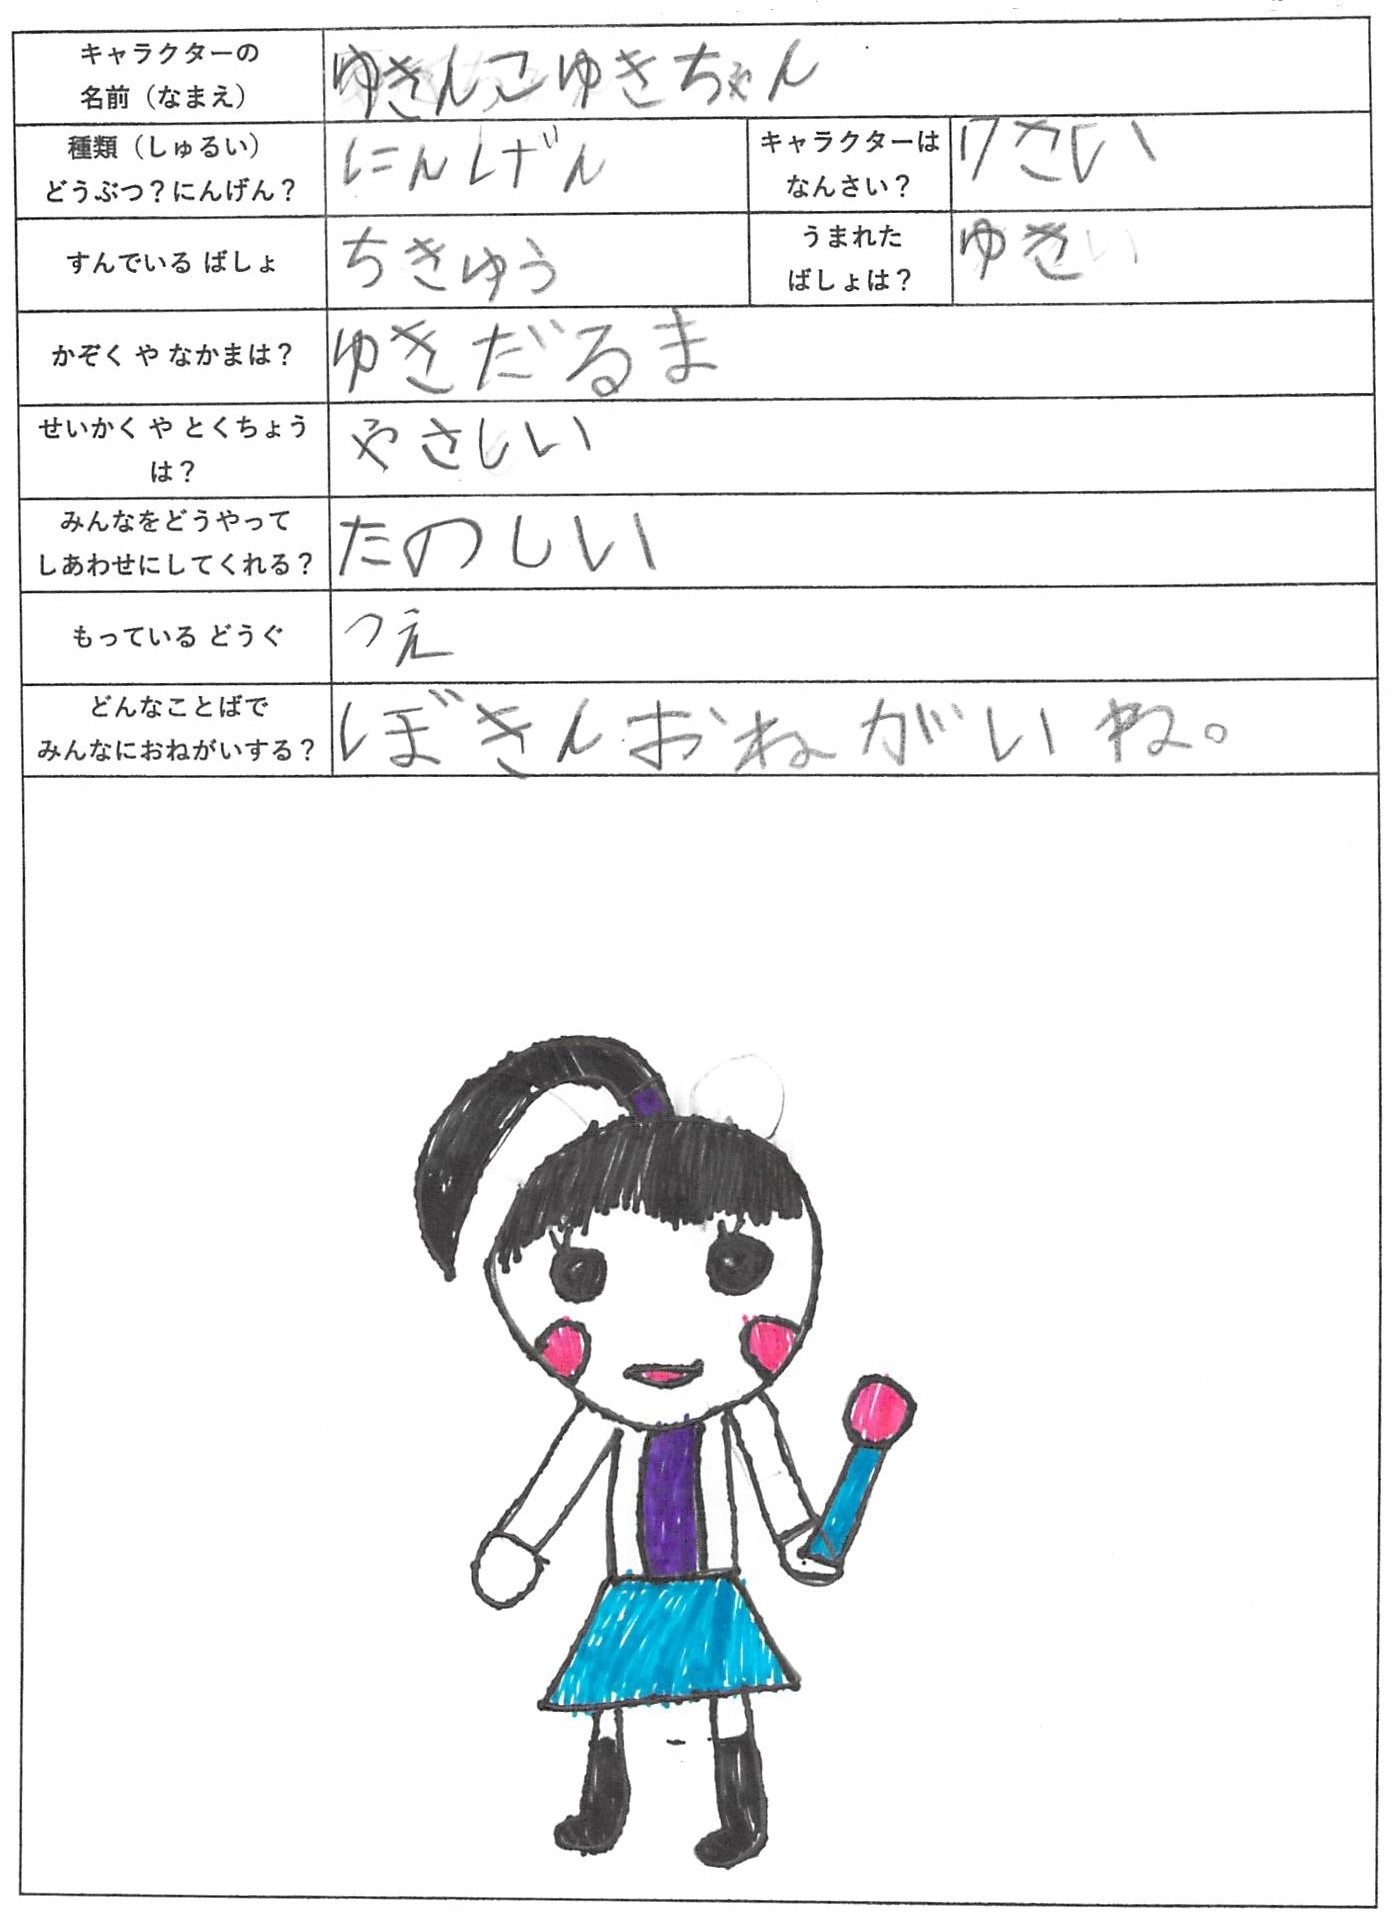 キャラクターの
名前（なまえ）
ゆきんこゆきちゃん
種類（しゅるい）
どうぶつ？にんげん？
にんげん
キャラクターは
なんさい？
7さい
すんでいる ばしょ
ちきゅう
うまれた
ばしょは？
ゆき
かぞく や なかまは？
ゆきだるま
せいかく や とくちょう
は？
やさしい
みんなをどうやって
しあわせにしてくれる？
たのしい
もっている どうぐ
つえ
どんなことばで
みんなにおねがいする？
ぼきんおねがいね。